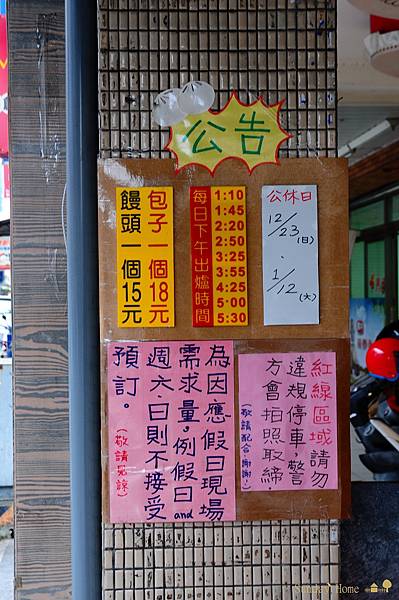 公告
包子一個18元
饅頭一個15元
每日下午出爐時間
1:10
1:45
2:20
2:50
3:25
3:55
4:25
5:00
5:30
公休日
12/23(日)
·
1/12(六)
為因應假日現場
需求量。例假日and
週六、日則不接受
預訂。
(敬請見諒)
紅線區域請勿
違規停車,警
方會拍照取締.
(敬請配合、謝謝!)